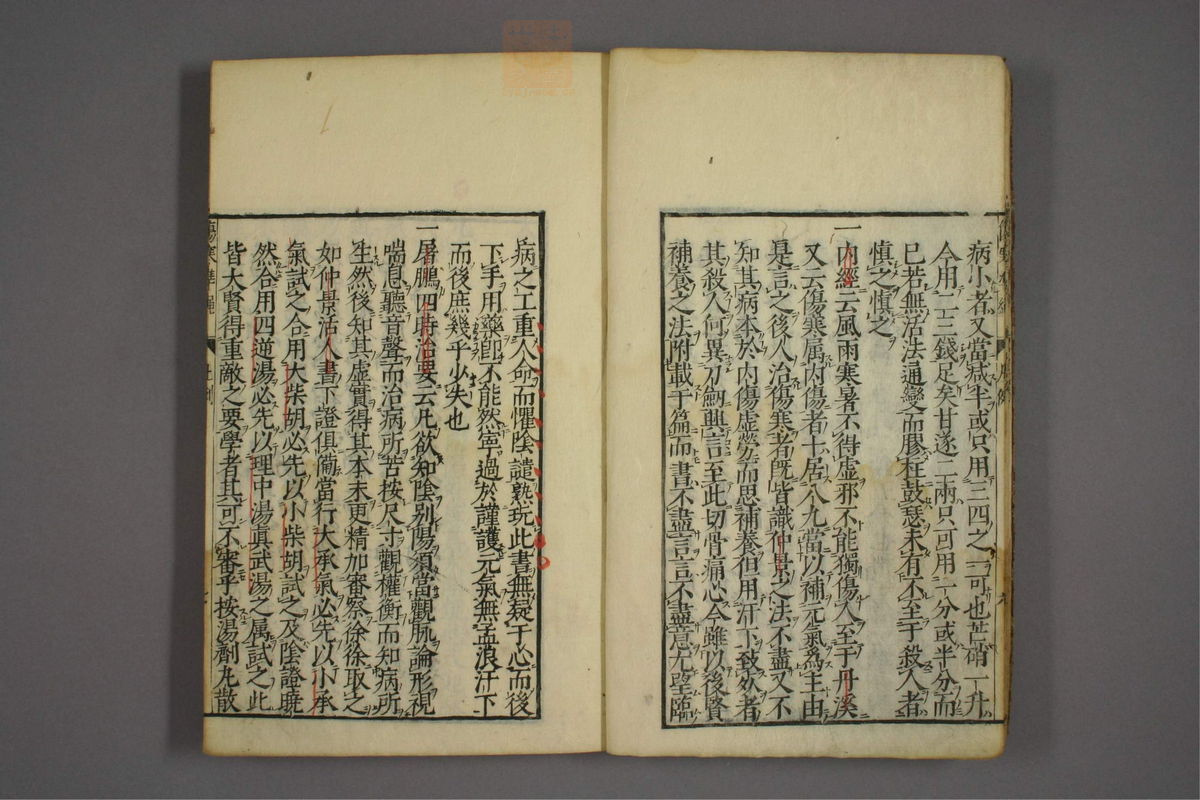 病小者又當减半或只用三四之一可也芒硝一升
今用二三錢足矣甘遂二兩只可用一分或半分而
已若無活法通變而膠柱鼓瑟未有不至于殺人者
慎之慎之
一内經云風雨寒暑不得虚邪不能獨傷人至于丹溪
又云傷寒属内傷者十居八九當以補元氣爲主由
是言之後人治傷寒者既皆識仲景之法不盡又不
知其病本於内傷虚勞而思補養但用汗下致死者
其殺人何異刀劒興言至此切骨痛心今雖以後賢
補養之法附載于篇而書不盡言言不盡意尤望臨
病之工重人命而懼陰譴熟玩此書無疑于心而後
下手用藥卽不能然寧過於謹護元氣無孟浪汗下
而後庶幾乎少失也
一屠鵬四時治要云凡欲知陰别陽須當觀脉論形視
喘息聽音聲而治病所苦按尺寸觀權衡而知病所
生然後知其虚實得其本末更精加審察徐徐取之
如仲景活人書下證俱備當行大承氣必先以小承
氣試之合用大柴胡必先以小柴胡試之及陰證曉
然合用四逆湯必先以理中湯眞武湯之属試之此
皆大賢得重敵之要學者其可不審乎按湯劑丸散